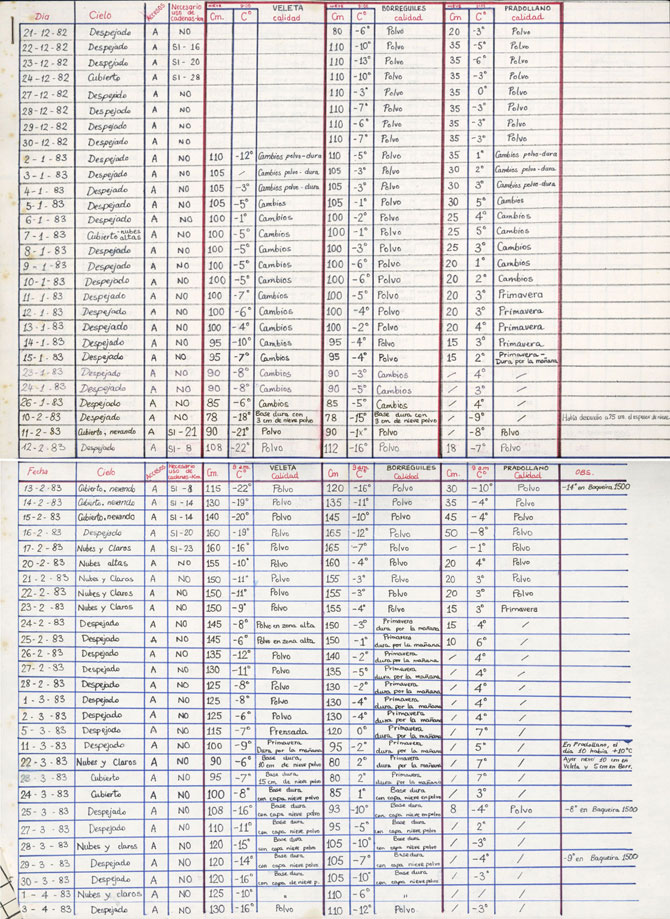 Día Cielo ACCESOS Necesario uso de cadenas-km NIEVE Cm. 9:00 Cº VELETA calidad NIEVE Cm. 9:00 Cº BORREGUILES calidad NIEVE Cm. 9:00 Cº PRADOLLANO calidad
21-12-82 Despejado A NO 80 -6° Polvo 20 -3° Polvo
22-12-82 Despejado A SI-16 110 -10° Polvo 35 -5° Polvo
23-12-82 Despejado A SI-20 110 -13° Polvo 35 -6° Polvo
24-12-82 Cubierto A SI-28 110 -10° Polvo 35 -3° Polvo
27-12-82 Despejado A NO 110 -3° Polvo 35 0° Polvo
28-12-82 Despejado A NO 110 -7° Polvo 35 -3° Polvo
29-12-82 Despejado A NO 110 -6° Polvo 35 -3° Polvo
30-12-82 Despejado A NO 110 -7° Polvo 35 -3° Polvo
2-1-83 Despejado A NO 110 -12° Cambios polvo-dura 110 -5° Polvo 35 1° Cambios polvo-dura
3-1-83 Despejado A NO 105 / Cambios polvo-dura 105 -3° Polvo 30 2° Cambios polvo-dura
4-1-83 Despejado A NO 105 -3° Cambios polvo-dura 105 -3° Polvo 30 3° Cambios polvo-dura
5-1-83 Despejado A NO 105 -5° Cambios 105 -1° Polvo 30 5° Cambios
6-1-83 Despejado A NO 100 -1° Cambios 100 -2° Polvo 25 4° Cambios
7-1-83 Cubierto-nubes altas A NO 100 -5° Cambios 100 -1° Polvo 25 5° Cambios
8-1-83 Despejado A NO 100 -5° Cambios 100 -3° Polvo 25 3° Cambios
9-1-83 Despejado A NO 100 -5° Cambios 100 -6° Polvo 20 1° Cambios
10-1-83 Despejado A NO 100 -5° Cambios 100 -6° Polvo 20 2° Cambios
11-1-83 Despejado A NO 100 -7° Cambios 100 -5° Polvo 20 3° Primavera
12-1-83 Despejado A NO 100 -6° Cambios 100 -4° Polvo 20 4° Primavera
13-1-83 Despejado A NO 100 -4° Cambios 100 -2° Polvo 20 4° Primavera
14-1-83 Despejado A NO 95 -10° Cambios 95 -4° Polvo 15 3° Primavera
15-1-83 Despejado A NO 95 -7° Cambios 95 -4° Polvo 15 2° Primavera-Dura por la mañana
23-1-83 Despejado A NO 90 -8° Cambios 90 -3° Cambios / 4° /
24-1-83 Despejado A NO 90 -8° Cambios 90 -5° Cambios / 3° /
26-1-83 Despejado A NO 85 -6° Cambios 85 -5° Cambios / 4° /
10-2-83 Despejado A NO 78 -18° Base dura con 3 cm de nieve polvo 78 -15° Base dura con 3 cm de nieve polvo / -9° /
11-2-83 Cubierto, nevando A SI-21 90 -21° Polvo 90 Polvo / -8° Polvo
12-2-83 Despejado A SI-8 108 -22° Polvo 112 -16° Polvo 18 -7° Polvo
Fecha Cielo ACCESOS Necesario uso de cadenas-Km. Cm. 9 a.m. Cº VELETA Calidad Cm. 9 a.m. Cº BORREGUILES Calidad Cm. 9 a.m Cº PRADOLLANO Calidad OBS.
13-2-83 Cubierto, nevando A SI-8 115 -22° Polvo 120 -16° Polvo 30 -10° Polvo -14° en Baqueira 1500
14-2-83 Cubierto, nevando A SI-14 130 -19° Polvo 135 -11° Polvo 35 -4° Polvo
15-2-83 Cubierto, nevando A SI-14 140 -20° Polvo 145 -10° Polvo 45 -4° Polvo
16-2-83 Despejado A SI-20 160 -19° Polvo 165 -12° Polvo 50 -8° Polvo
17-2-83 Nubes y Claros A SI-23 160 -16° Polvo 165 -7° Polvo / -1° Polvo
20-2-83 Nubes altas A NO 155 -10° Polvo 160 -4° Polvo 20 4° Polvo
21-2-83 Nubes y Claros A NO 150 -11° Polvo 155 -3° Polvo 20 3° Polvo
22-2-83 Nubes y Claros A NO 150 -11° Polvo 155 -3° Polvo 20 3° Polvo
23-2-83 Nubes y Claros A NO 150 -9° Polvo 155 -4° Polvo 15 3° Primavera
24-2-83 Despejado A NO 145 -8° Polvo en zona alta 150 -3° Primavera dura por la mañana 15 4° /
25-2-83 Despejado A NO 145 -6° Polvo en zona alta 150 -1° Primavera dura por la mañana 10 6° /
26-2-83 Despejado A NO 135 -12° Polvo 140 -2° Primavera dura por la mañana / 4° /
27-2-83 Despejado A NO 130 -11° Polvo 135 -5° Primavera dura por la mañana / 4° /
28-2-83 Despejado A NO 125 -8° Polvo 130 -2° Primavera dura por la mañana / 4° /
1-3-83 Despejado A NO 125 -8° Polvo 130 -4° Primavera dura por la mañana / 4° /
2-3-83 Despejado A NO 125 -6° Polvo 130 -4° Primavera dura por la mañana / 4° /
5-3-83 Despejado A NO 115 -7° Prensada 120 0° Primavera dura por la mañana / 7° /
11-3-83 Despejado A NO 100 -9° Primavera Dura por la mañana 95 -2° Primavera dura por la mañana / 5° / En Pradollano, el día 10 había +10°C
22-3-83 Nubes y Claros A NO 90 -6° Base dura 10 cm de nieve polvo 80 2° Primavera dura por la mañana / 7° / Ayer nevó 10 cm en Veleta y 5 cm en Borr.
Cubierto A NO 95 -7° Base dura 15 cm de nieve polvo 80 2° Primavera / 7° /
24-3-83 Cubierto A NO 100 -8° Base dura con capa nieve polvo 85 1° Base dura con capa nieve polvo / 3° /
25-3-83 Despejado A NO 108 -16° Base dura con capa nieve polvo 93 -10° Base dura con capa nieve polvo 8 -4° Polvo -8° en Baqueira 1500
27-3-83 Despejado A NO 110 -11° Base dura con capa nieve polvo 95 -5° Base dura con capa nieve polvo / 2° /
28-3-83 Nubes y claros A NO 120 -15° Base dura con capa nieve polvo 105 -10° Base dura con capa nieve polvo / -3° /
29-3-83 Despejado A NO 120 -14° Base dura con capa nieve polvo 105 -7° Base dura con capa nieve polvo / -4° / -9° en Baqueira 1500
30-3-83 Despejado A NO 120 -16° Base dura con capa de nieve p. 105 -10° Base dura con capa nieve polvo / -3° /
1-4-83 Nubes y claros A NO 125 -10° Polvo 110 -6° " / / /
3-4-83 Despejado A NO 130 -16° Polvo 110 -12° Polvo / -3° /